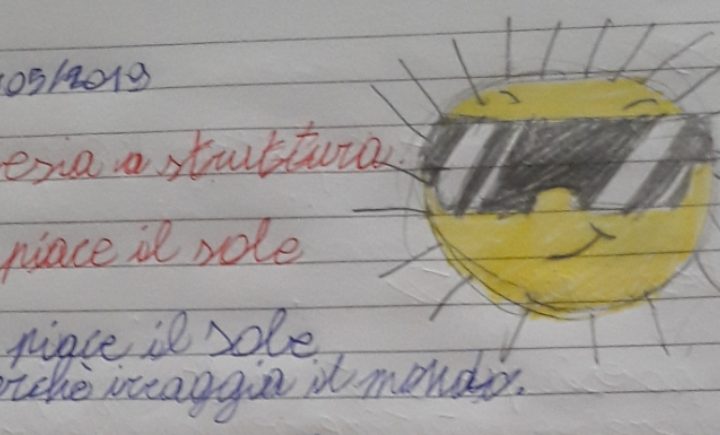 05/2019
esia a struttura
piace il sole
piace il sole
erchè irraggia il mondo.